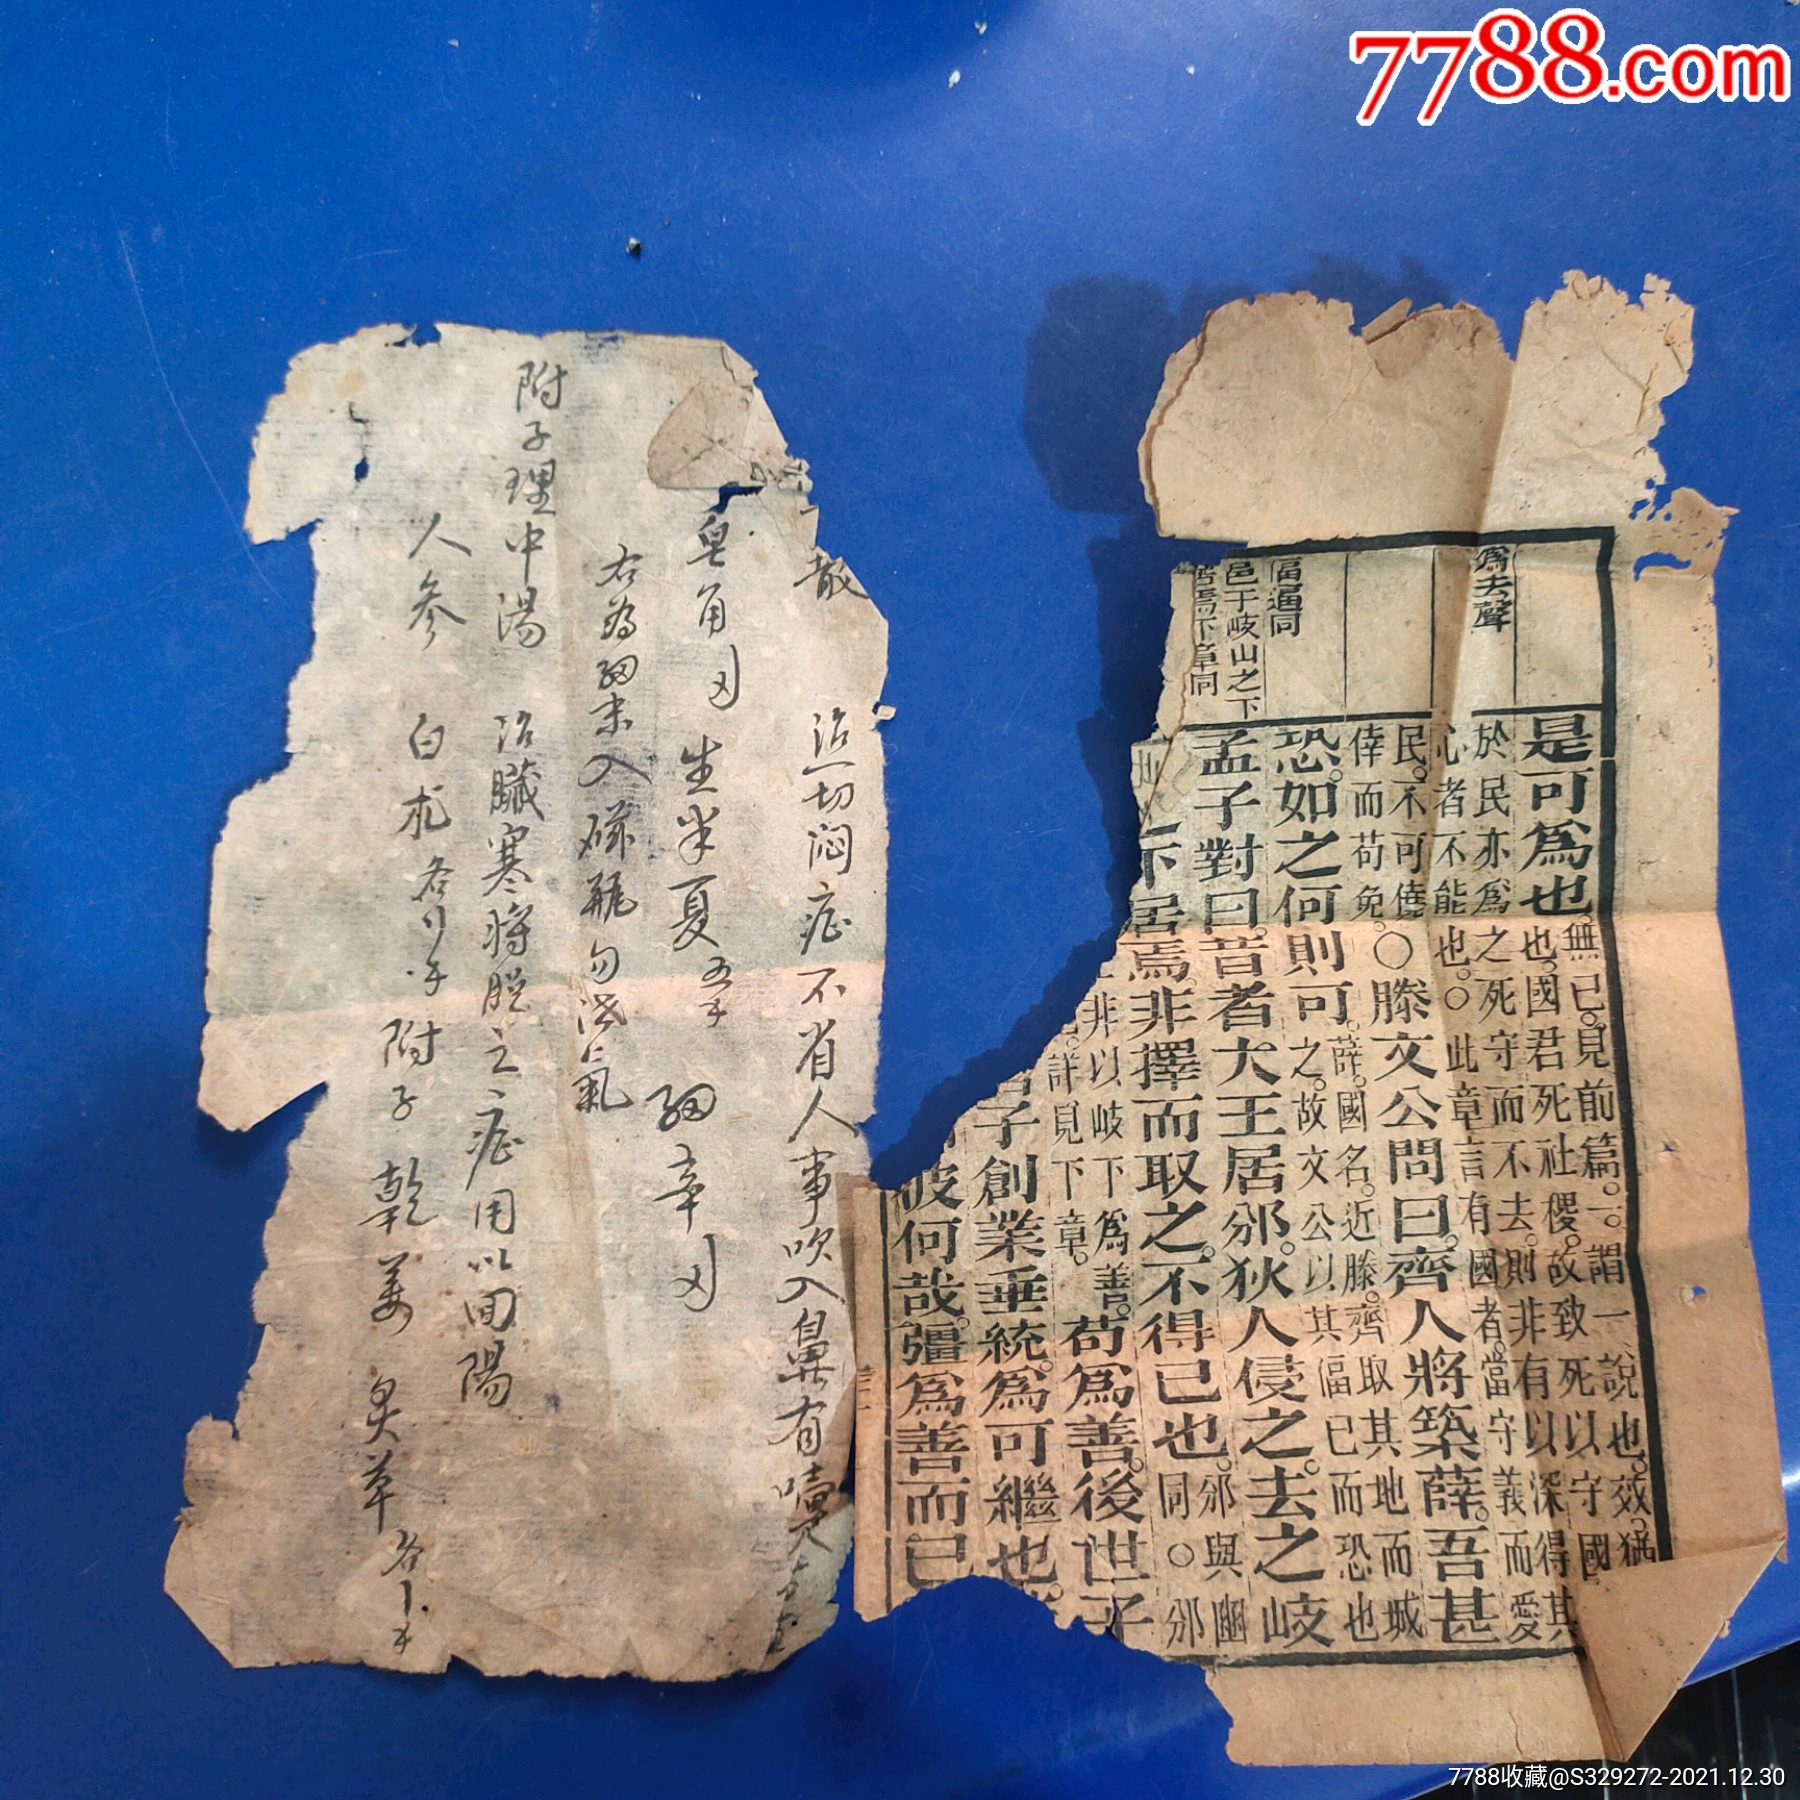 7788.com
散 治一切悶症不省人事吹入鼻有嚏
皂角 生半夏 細辛
右為細末入磁瓶勿泄氣
附子理中湯 治臟寒將脫之症用以回陽
人參 白朮各 附子 乾姜 炙草 各
為去聲
偪逼同
邑于岐山之下
居焉下章同
是可為也。無已。見前篇。一。謂一說也。效。猶
也。國君死社稷。故致死以守國
於民亦為之死守而不去。則非有以深得其
心者不能也。○此章言有國者。當守義而愛
民。不可僥
倖而苟免。
○滕文公問曰。齊人將築薛。吾甚
恐。如之何則可。薛。國名。近滕。齊取其地而城
之。故文公以其偪已而恐也
孟子對曰。昔者大王居邠。狄人侵之。去之岐
下居焉。非擇而取之。不得已也。邠與豳
同。○邠
非以岐下為善。
詳見下章。
苟為善。後世子
子創業垂統。為可繼也。
彼何哉。彊為善而已
7788收藏@S329272-2021.12.30